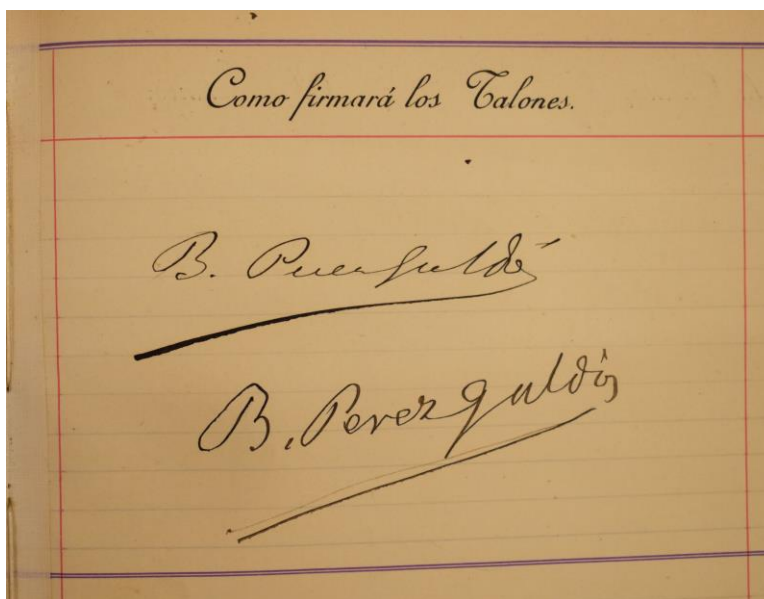 Como firmará los Talones.
B. Perez Galdós
B. Perez Galdós